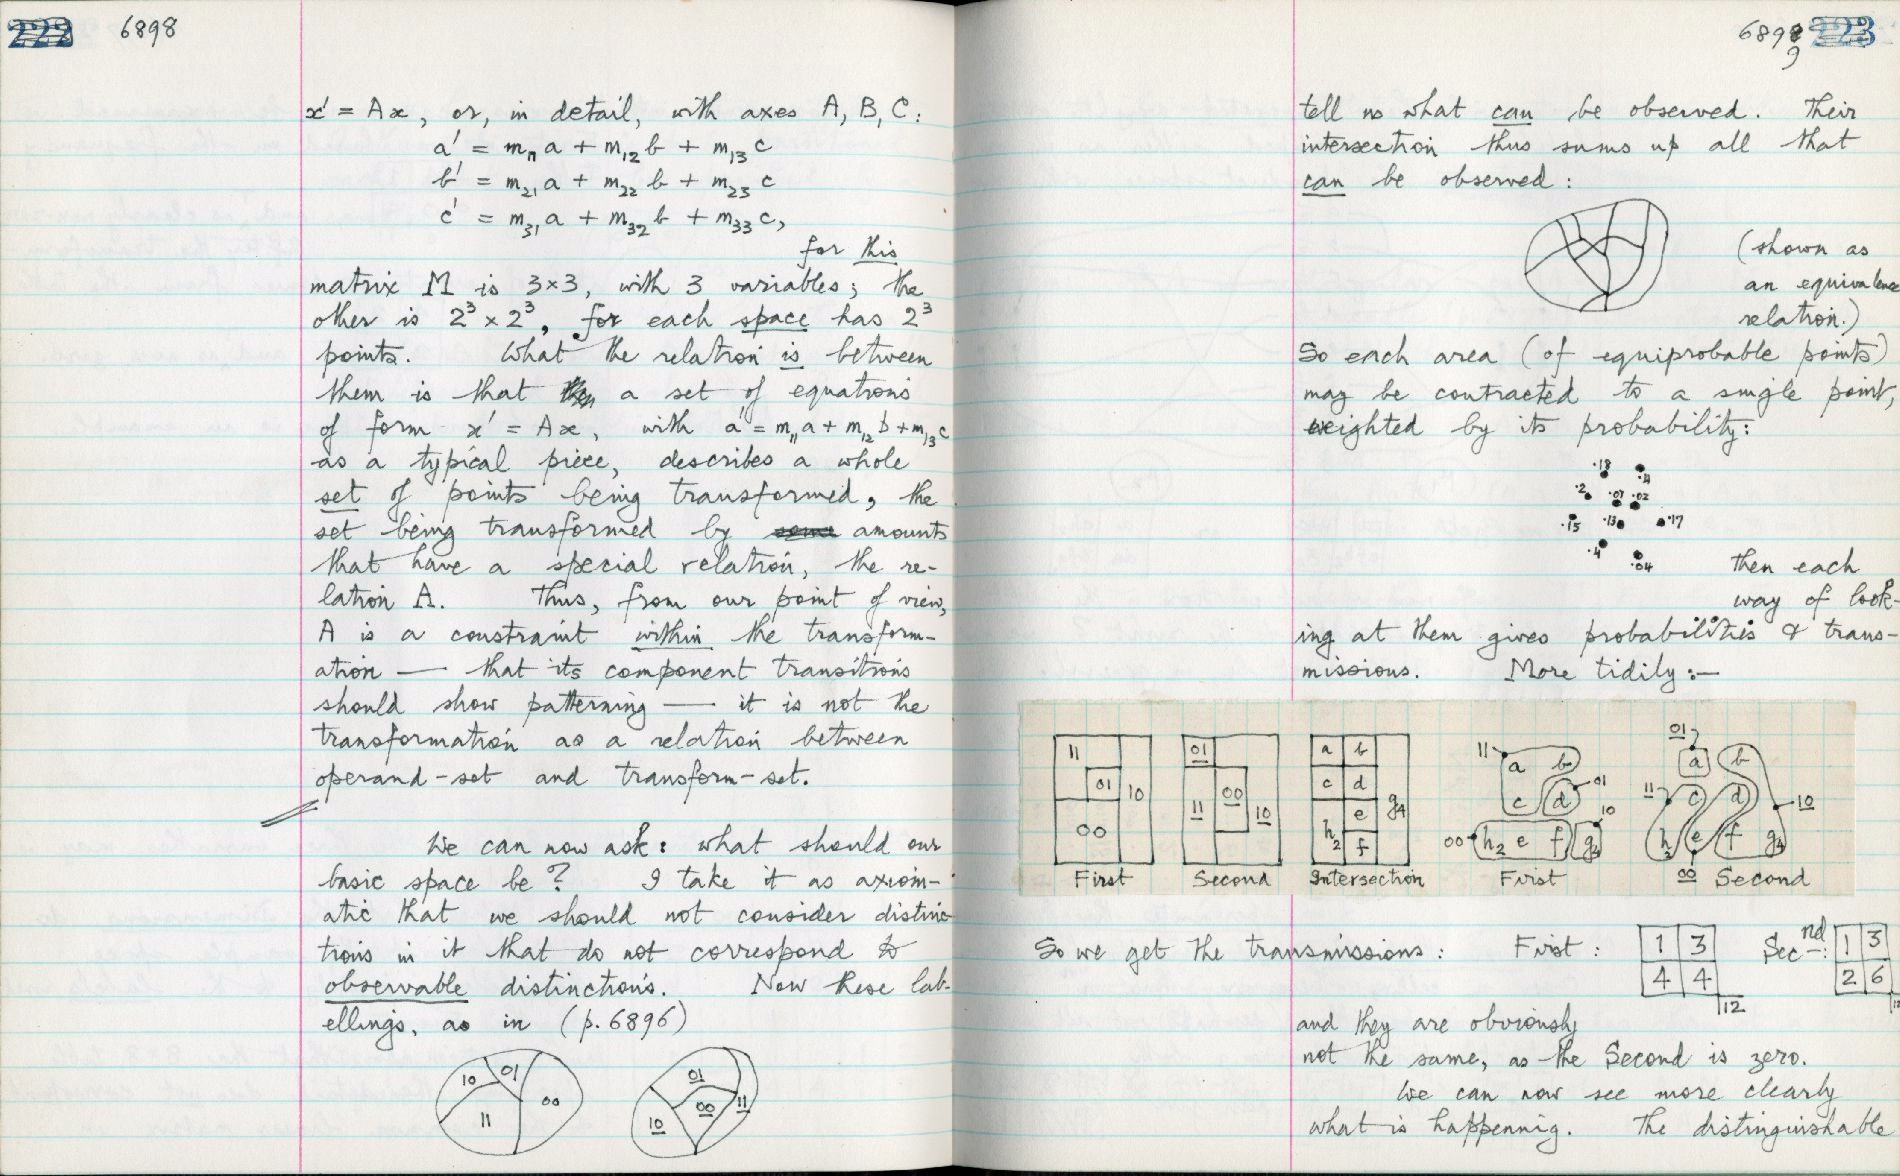 222 6898
x' = Ax, or, in detail, with axes A, B, C:
a' = m₁₁a + m₁₂b + m₁₃c
b' = m₂₁a + m₂₂b + m₂₃c
c' = m₃₁a + m₃₂b + m₃₃c,
for this
matrix M is 3×3, with 3 variables; the
other is 2³×2³, for each space has 2³
points. What the relation is between
them is that a set of equations
of form x' = Ax, with a' = m₁₁a + m₁₂b + m₁₃c
as a typical piece, describes a whole
set of points being transformed, the
set being transformed by some amounts
that have a special relation, the re-
lation A. Thus, from our point of view,
A is a constraint within the transform-
ation — that its component transitions
should show patterning — it is not the
transformation as a relation between
operand-set and transform-set.
We can now ask: what should our
basic space be? I take it as axiom-
atic that we should not consider distinc-
tions in it that do not correspond to
observable distinctions. Now these lab-
ellings, as in (p. 6896)
10 01 00 11
01 00 11 10
6899 223
tell us what can be observed. Their
intersection thus sums up all that
can be observed:
(shown as
an equivalence
relation.)
So each area (of equiprobable points)
may be contracted to a single point,
weighted by its probability:
.18 .11
.2 .07 .02
.15 .13 .17
.4 .04
then each
way of look-
ing at them gives probabilities & trans-
missions. More tidily:—
11 01 10 00
01 11 00 10
a b c d e f g₄ h₂
11 a b c d 01 10 00 h₂ e f g₄
01 a b 11 c d 10 h₂ e f g₄ 00
First Second Intersection First Second
So we get the transmissions: First: 1 3 4 4 12 Secnd: 1 3 2 6 12
and they are obviously
not the same, as the Second is zero.
We can now see more clearly
what is happening. The distinguishable